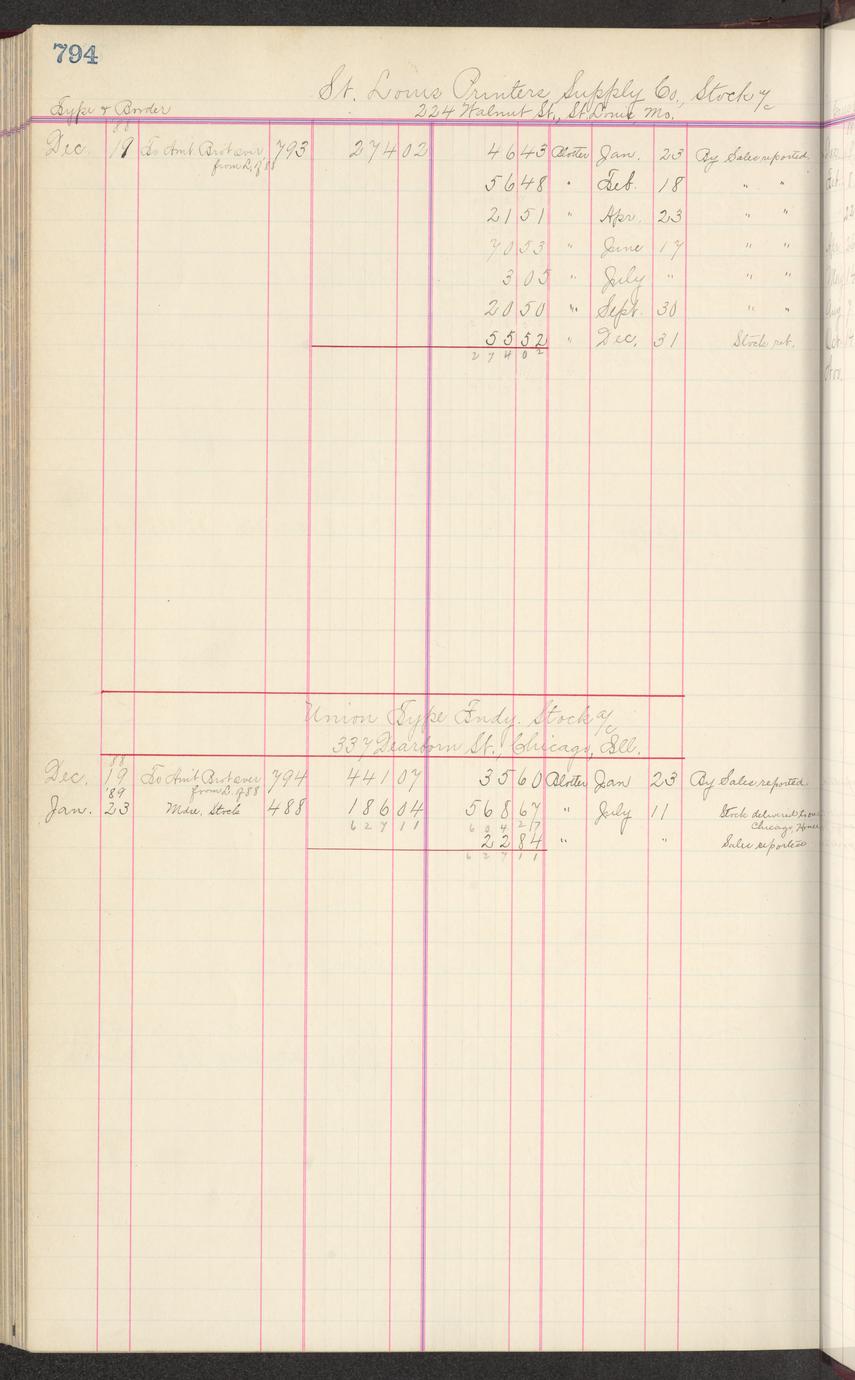 794
St. Louis Printers Supply Co., Stock a/c
Type & Border 224 Walnut St., St. Louis, Mo.
'88
Dec. 19 To Amt Brot over 793 274 02 46 43 Blotter Jan. 23 By Sales reported.
from L. of '88
56 48 " Feb. 18 " "
21 51 " Apr. 23 " "
70 53 " June 17 " "
3 05 " July " " "
20 50 " Sept. 30 " "
55 52 " Dec. 31 Stock ret.
274 02
Union Type Fndy. Stock a/c
337 Dearborn St., Chicago, Ill.
'88
Dec. 19 To Am't Brot over 794 441 07 35 60 Blotter Jan 23 By Sales reported.
from L. of 88
'89
Jan. 23 Mdse, Stock 488 186 04 568 67 " July 11 Stock delivered
Chicago,
627 11 604 27
22 84 " " Sales reported
627 11